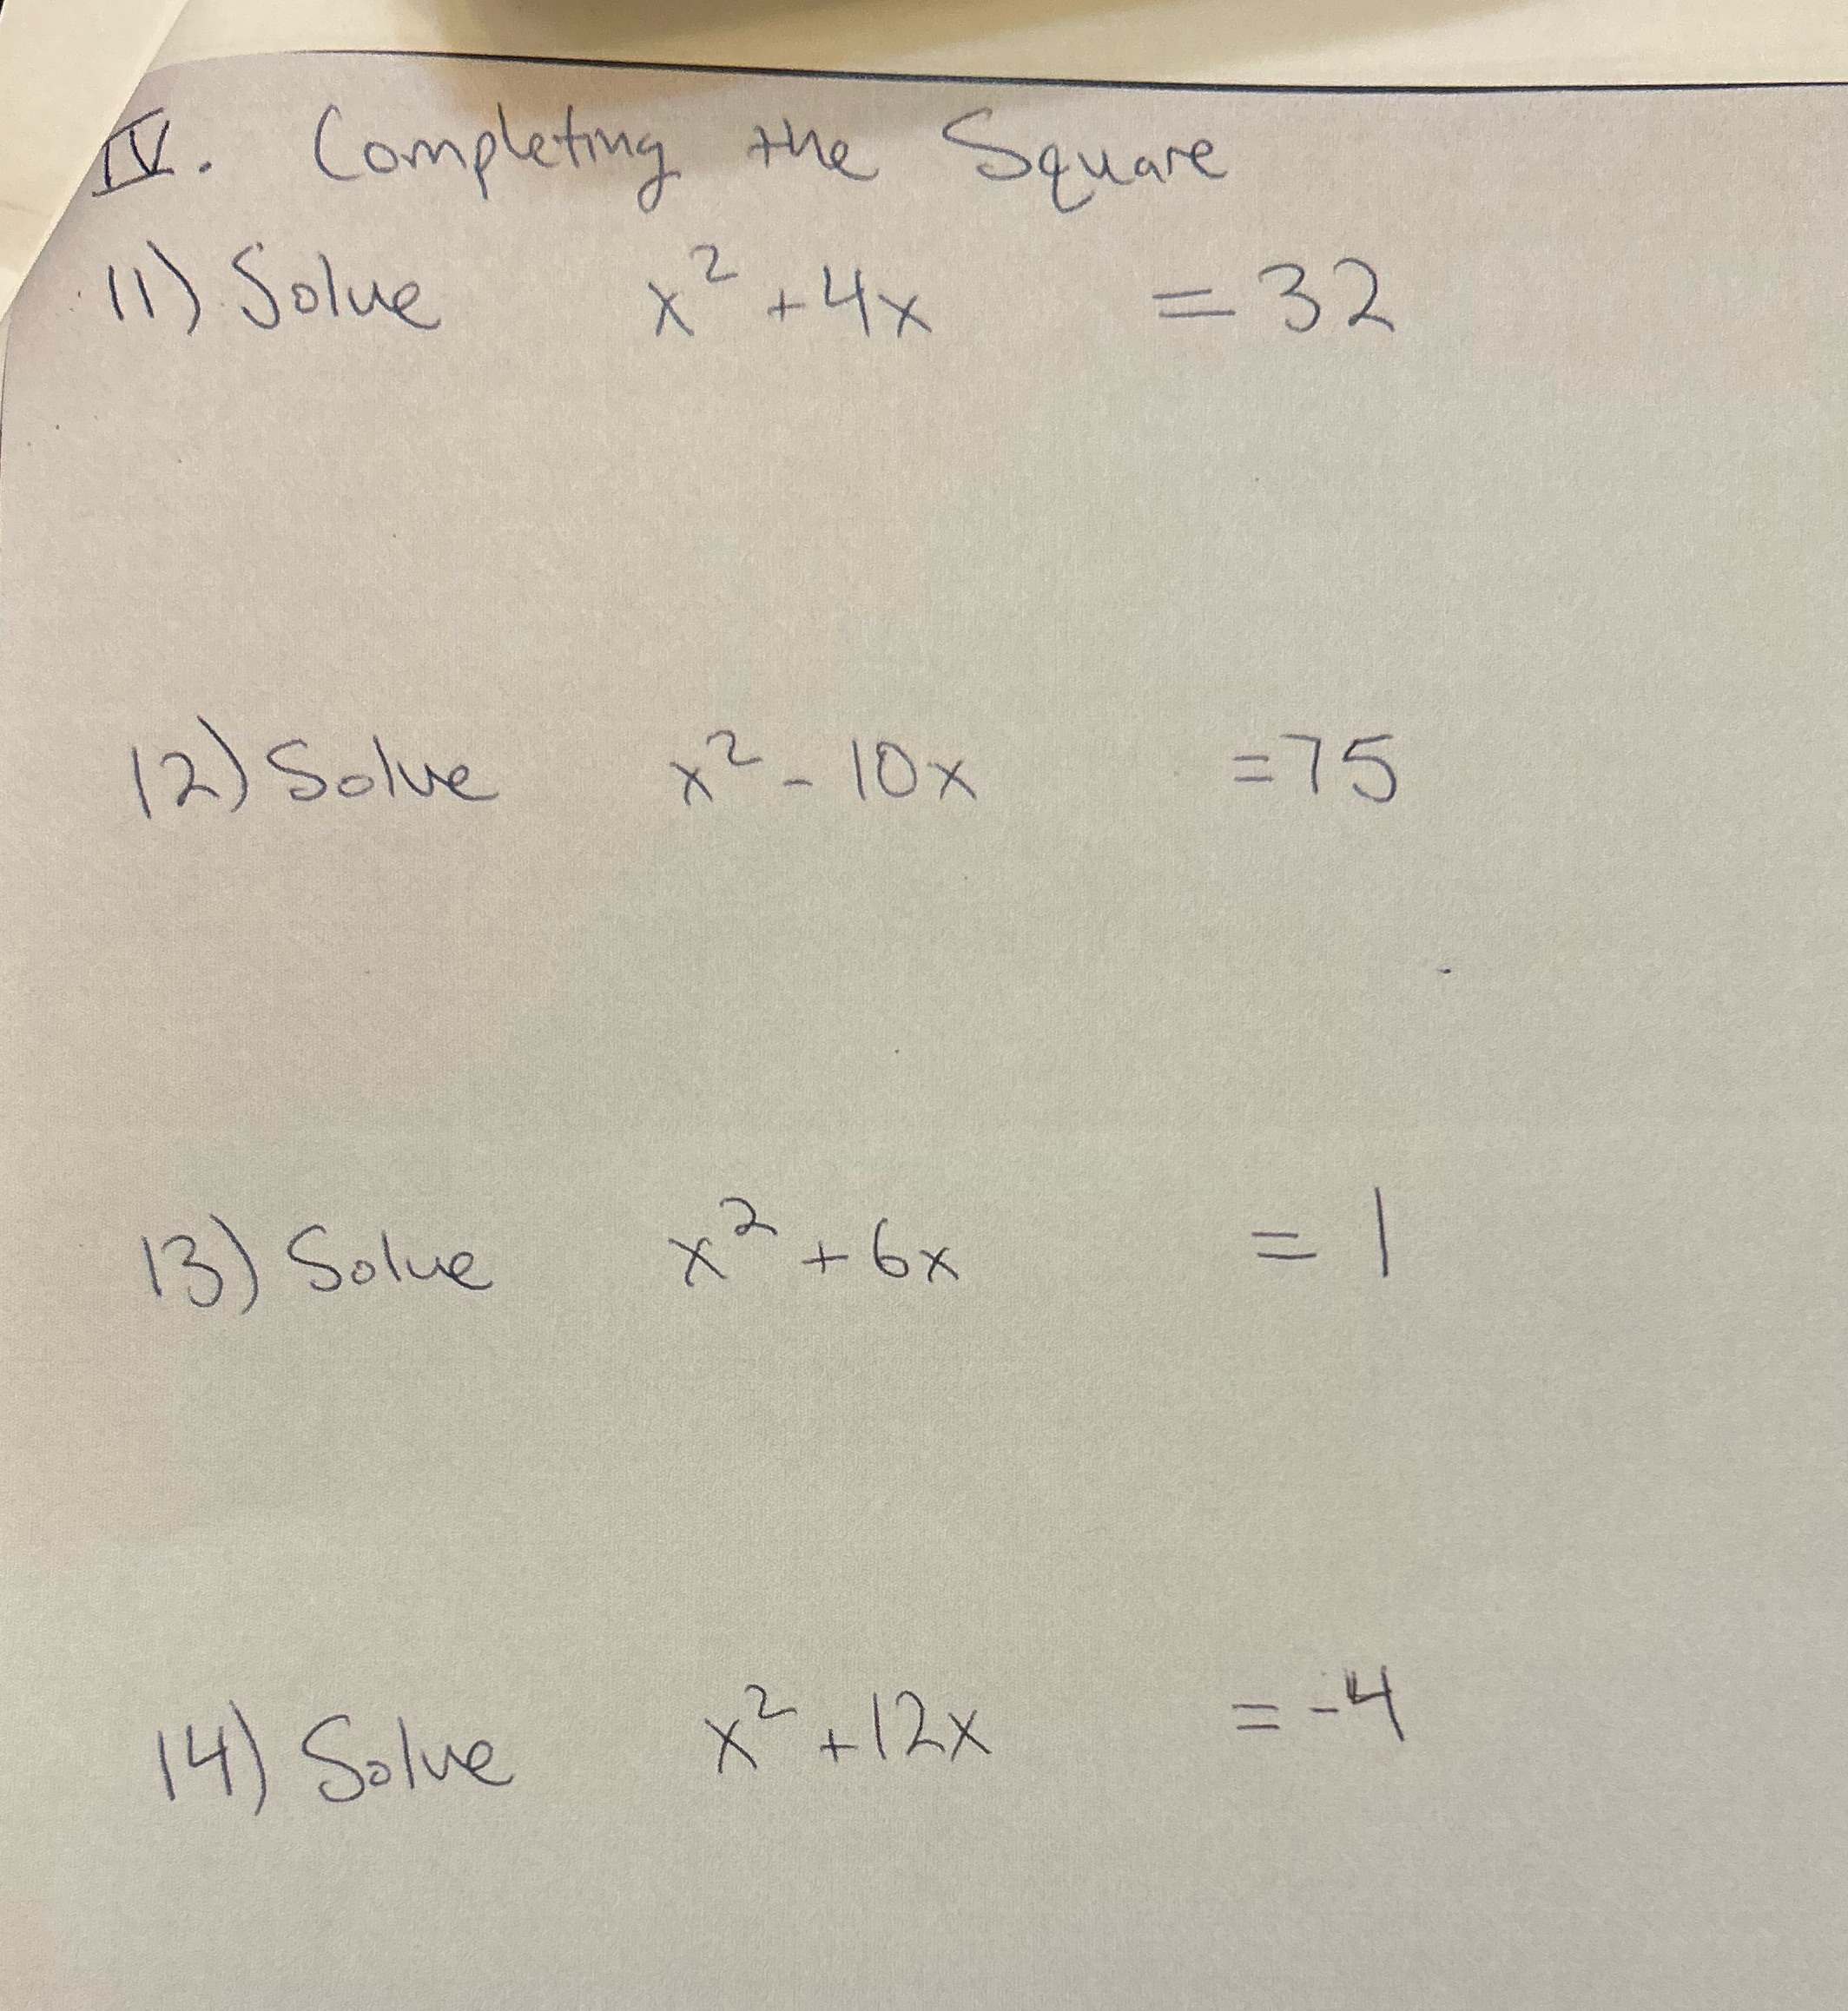 IV. Completing the Square
11) Solve x² + 4x = 32
12) Solve x² - 10x = 75
13) Solve x² + 6x = 1
14) Solve x² + 12x = -4